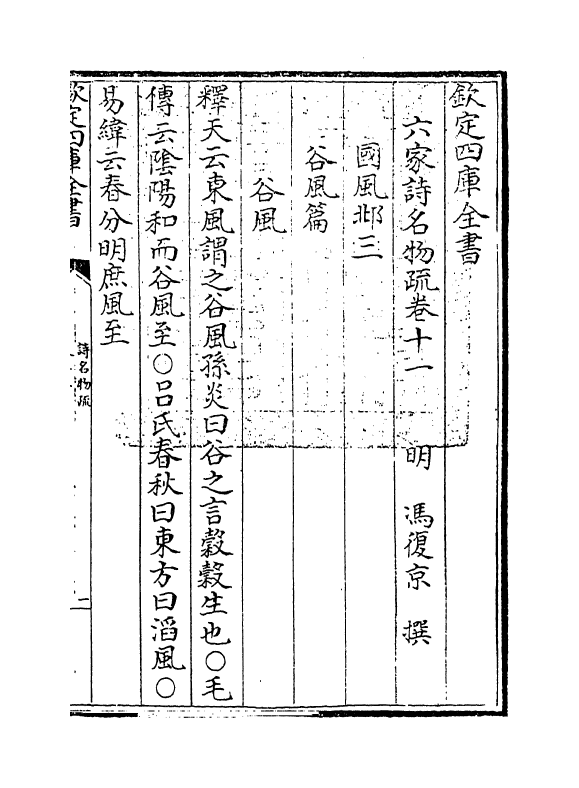 欽定四庫全書
六家詩名物疏卷十一　明　馮復京　撰
國風邶三
谷風篇
谷風
釋天云東風謂之谷風孫炎曰谷之言穀穀生也○毛
傳云隂陽和而谷風至○呂氏春秋曰東方曰滔風○
易緯云春分明庶風至
欽定四庫全書
詩名物疏
一